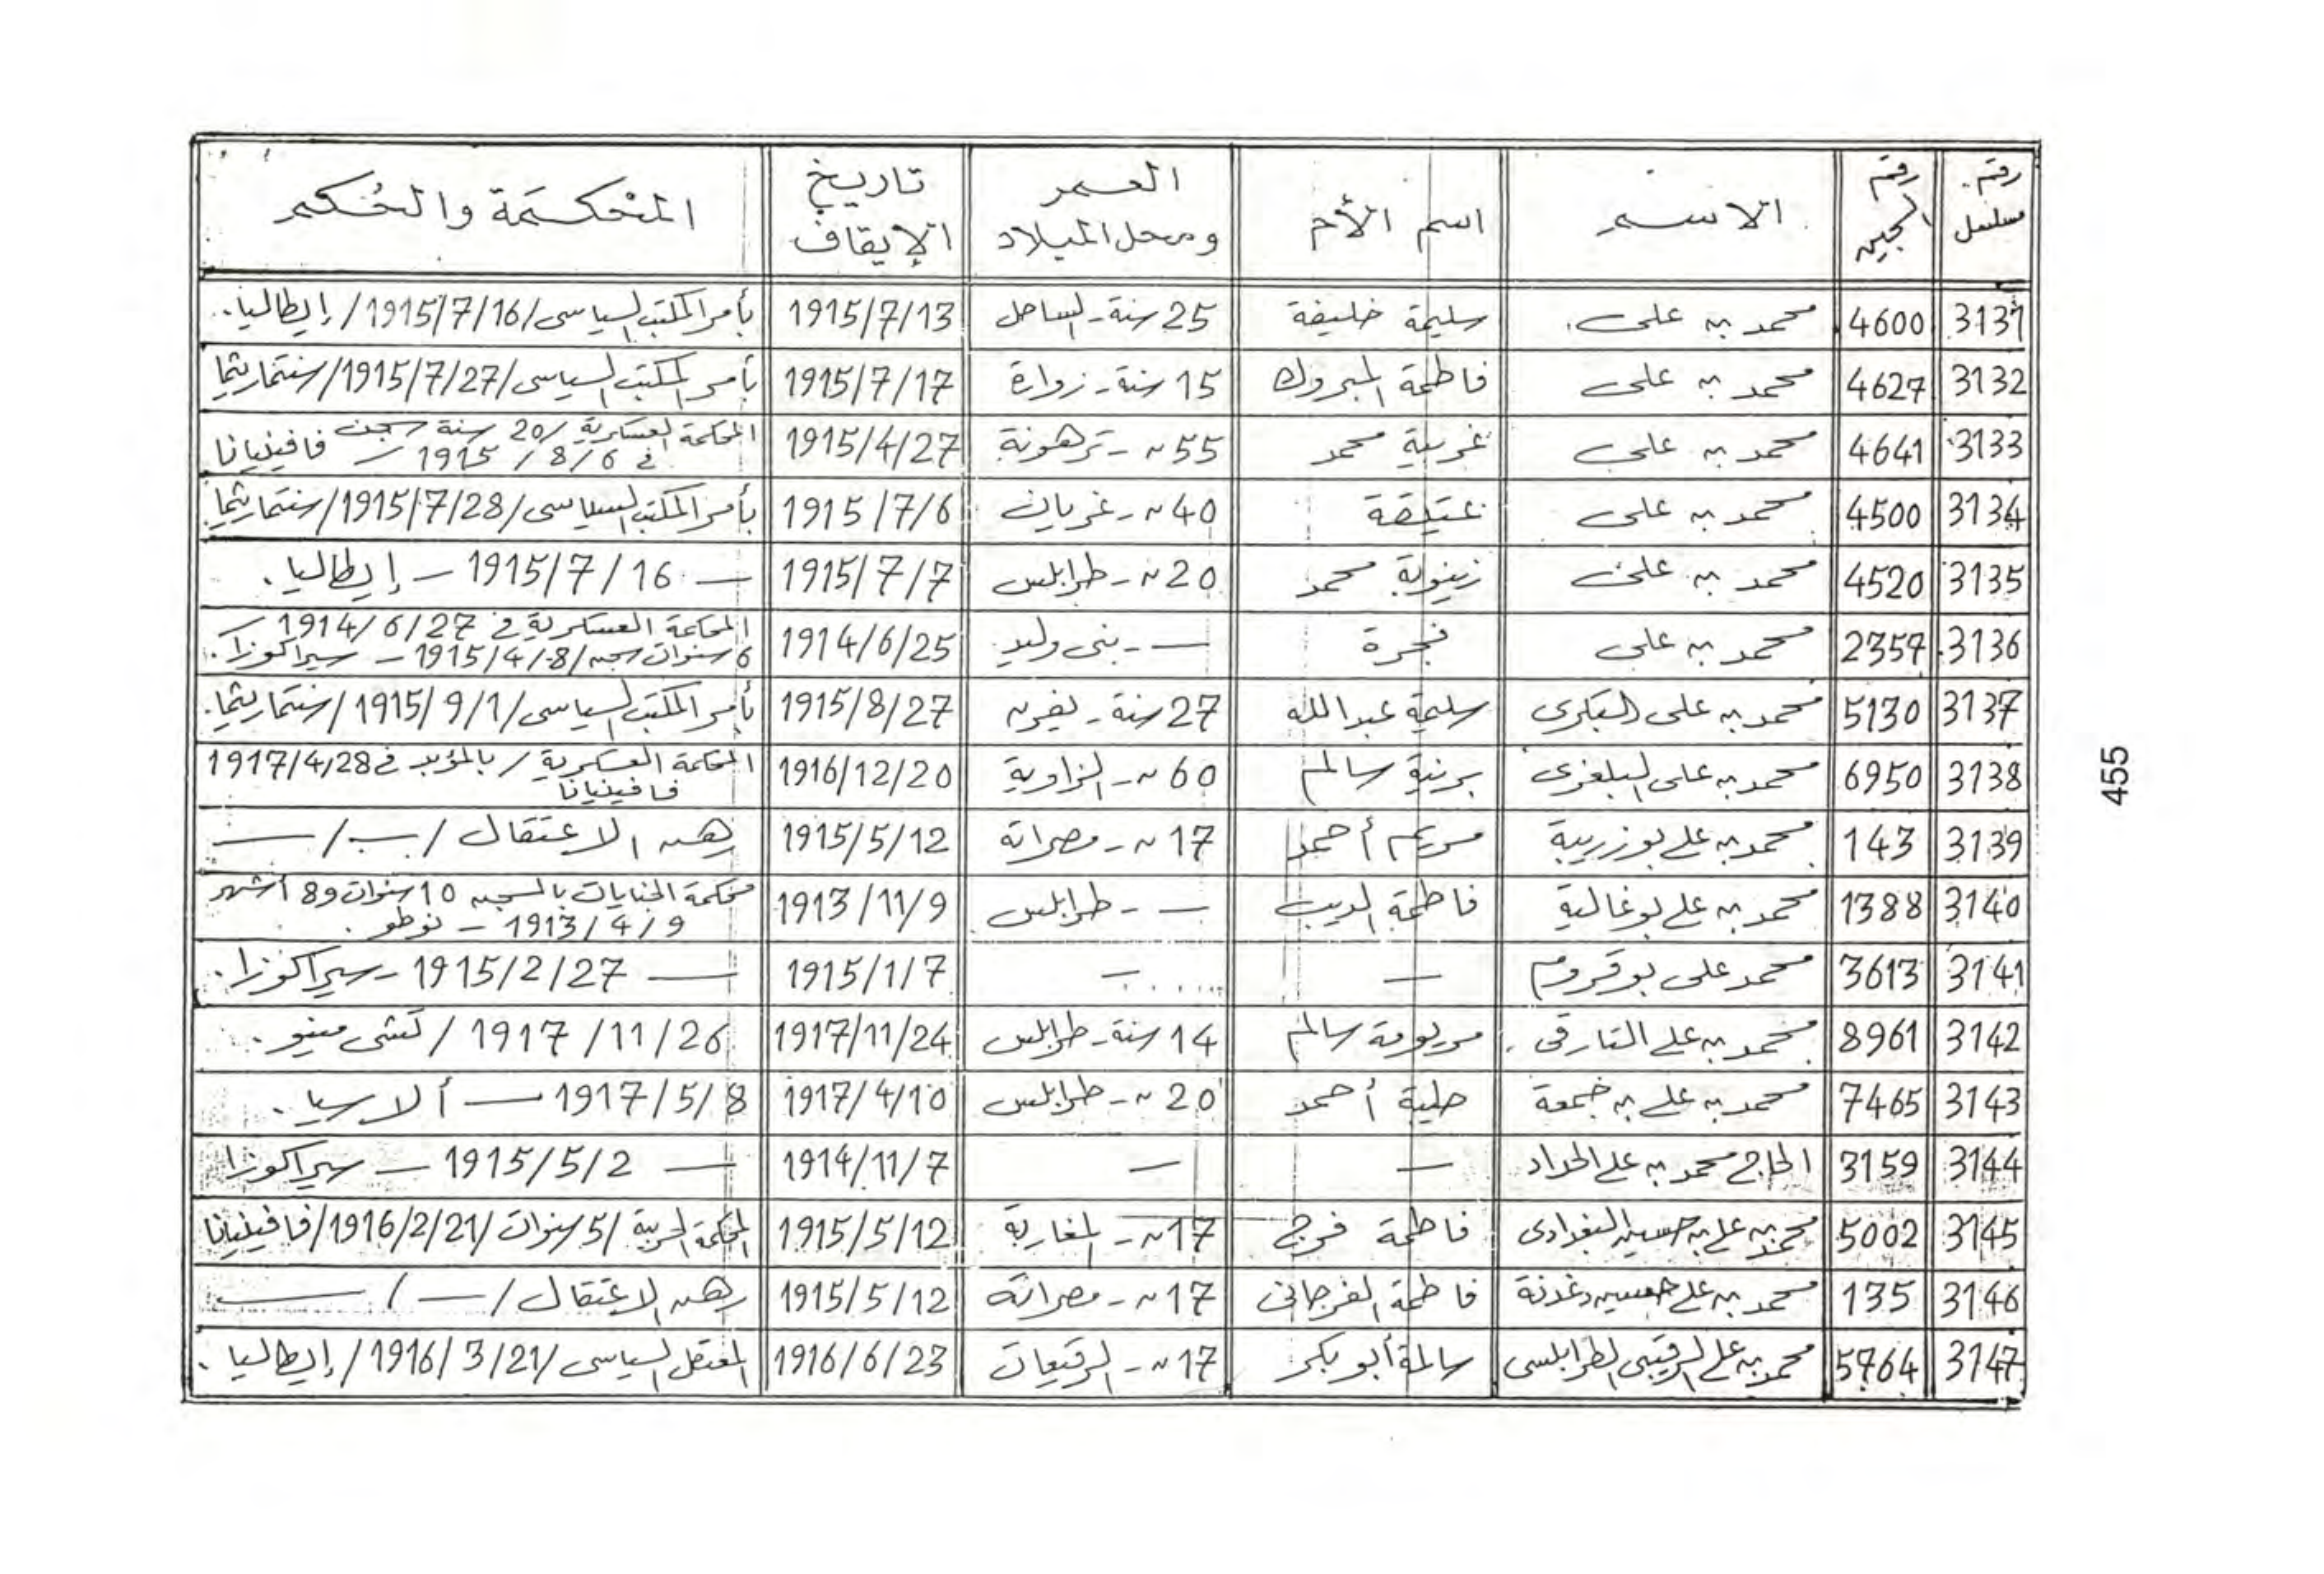 رقم مسلسل | رقم السجين | الاسم | اسم الأم | العمر ومحل الميلاد | تاريخ الإيقاف | المحكمة والحكم
3131 | 4600 | محمد بن على | سليمة خليفة | 25 سنة - الساحل | 1915/7/13 | بأمر المكتب السياسى / 1915/7/16 / إيطاليا.
3132 | 4627 | محمد بن على | فاطمة المبروك | 15 سنة - زوارة | 1915/7/17 | بأمر المكتب السياسى / 1915/7/27 / سنتماريثما
3133 | 4641 | محمد بن على | غريبة محمد | 55 ~ - ترهونة | 1915/4/27 | المحكمة العسكرية / 20 سنة سجن فى 6 / 8 / 1915 — فافينيانا
3134 | 4500 | محمد بن على | عتيقة | 40 ~ - غريان | 1915/7/6 | بأمر المكتب السياسى / 1915/7/28 / سنتماريثما
3135 | 4520 | محمد بن على | زينوبة محمد | 20 ~ - طرابلس | 1915/7/7 | — 16 / 7 / 1915 — إيطاليا.
3136 | 2357 | محمد بن على | فجرة | — - بنى وليد | 1914/6/25 | المحكمة العسكرية فى 27 / 6 / 1914 — 6 سنوات سجن / 8 / 4 / 1915 — سيراكوزا.
3137 | 5130 | محمد بن على البكرى | سليمة عبدالله | 27 سنة - يفرن | 1915/8/27 | بأمر المكتب السياسى / 1915/9/1 / سنتماريثما.
3138 | 6950 | محمد بن على البلعزى | برنية سالم | 60 ~ - الزاوية | 1916/12/20 | المحكمة العسكرية / بالمؤبد فى 1917/4/28 فافينيانا
3139 | 143 | محمد بن على بوزريبة | مريم أحمد | 17 ~ - مصراتة | 1915/5/12 | رهن الاعتقال / — / —
3140 | 1388 | محمد بن على بوغالية | فاطمة الديب | — - طرابلس | 1913/11/9 | محكمة الجنايات بالسجن 10 سنوات و8 أشهر 9 / 4 / 1913 — نوطو.
3141 | 3613 | محمد على بوقروم | — | — | 1915/1/7 | — 1915/2/27 - سيراكوزا.
3142 | 8961 | محمد بن على التارقى | مريومة سالم | 14 سنة - طرابلس | 1917/11/24 | 26 / 11 / 1917 / تشى مينو.
3143 | 7465 | محمد بن على بن جمعة | حلية أحمد | 20 ~ - طرابلس | 1917/4/10 | 1917/5/8 — ألارسيا.
3144 | 3159 | الحاج محمد بن على الحداد | — | — | 1914/11/7 | — 1915/5/2 — سيراكوزا
3145 | 5002 | محمد بن على بن حسين البغدادى | فاطمة فرج | 17 ~ - المغاربة | 1915/5/12 | المحكمة الحربية / 5 سنوات / 1916/2/21 / فافينيانا
3146 | 135 | محمد بن على حسين دغدنة | فاطمة الفرجانى | 17 ~ - مصراتة | 1915/5/12 | رهن الاعتقال / — / —
3147 | 5764 | محمد بن على الرقيبى الطرابلسى | سالمة أبوبكر | 17 ~ - الرقيعات | 1916/6/23 | المعتقل السياسى / 1916/3/21 / إيطاليا.
455